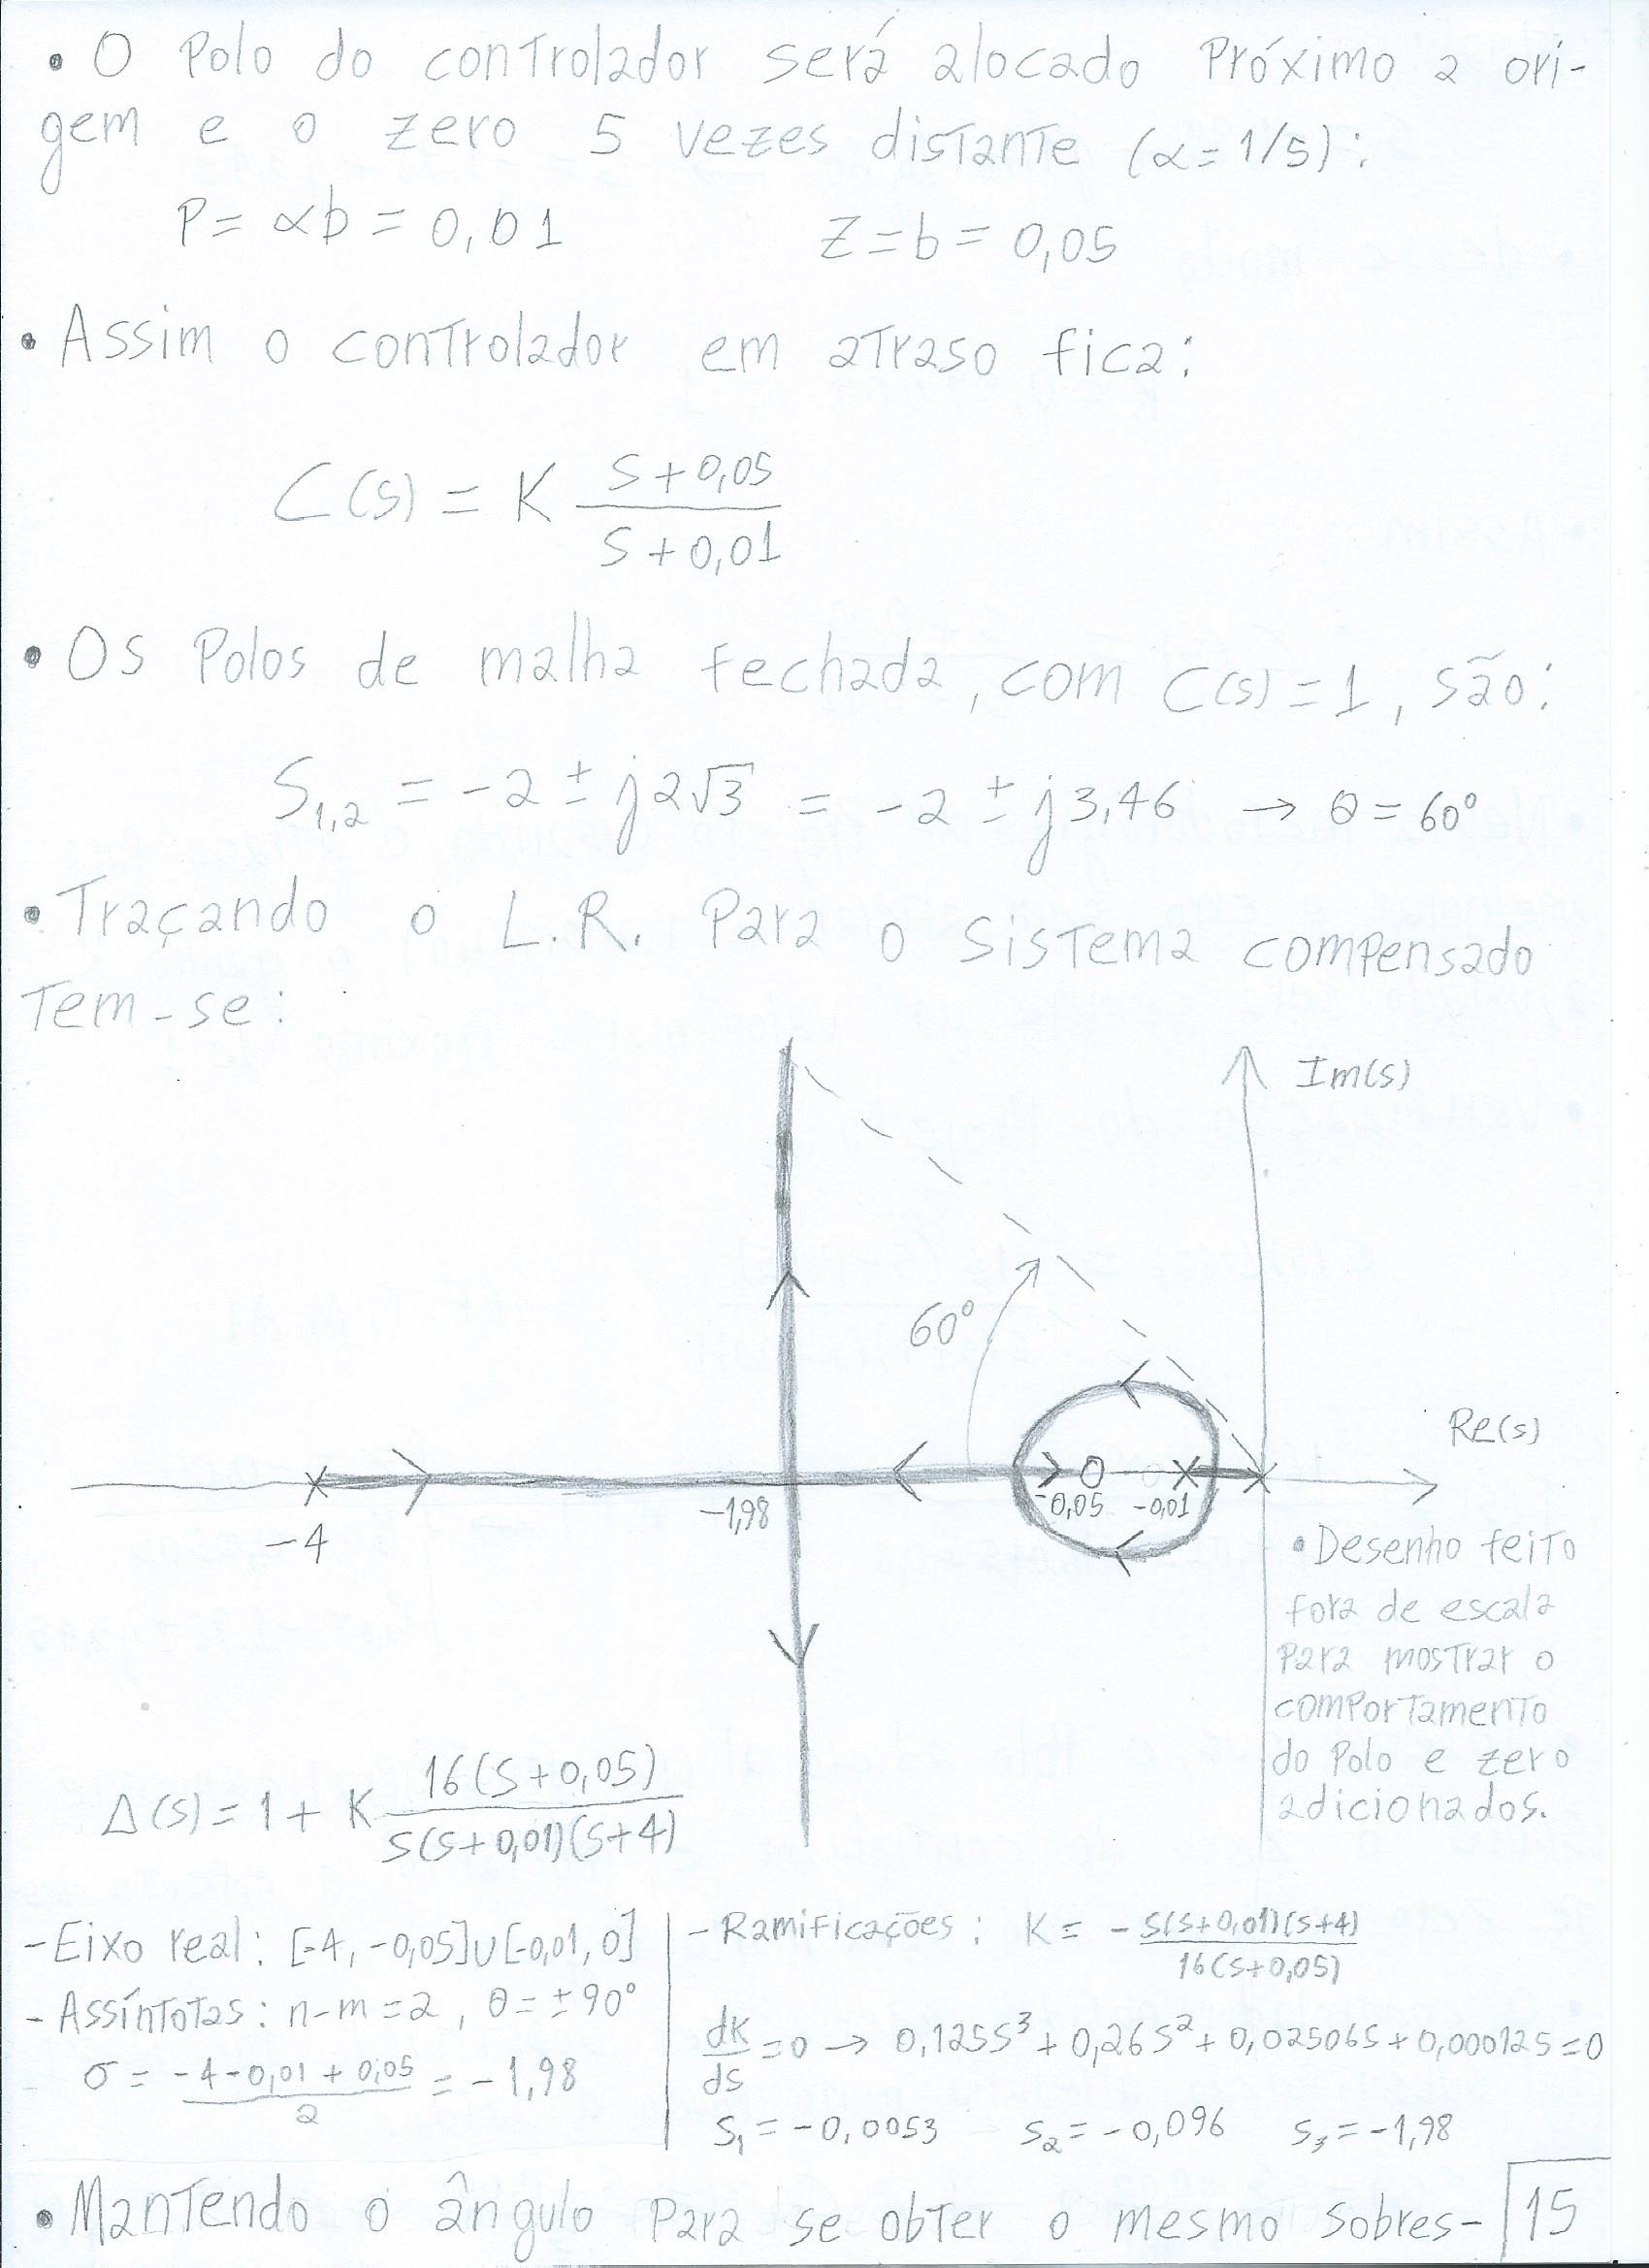 • O Polo do controlador será alocado Próximo a ori-
gem e o zero 5 vezes distante (α=1/5):
P= αb = 0,01 Z=b= 0,05
• Assim o controlador em atraso fica:
C(s) = K (s+0,05)/(s+0,01)
• Os Polos de malha fechada, com C(s)=1, são:
S₁,₂ = -2 ± j2√3 = -2 ± j3,46 → θ = 60°
• Traçando o L.R. Para o sistema compensado
Tem-se:
Im(s)
60°
Re(s)
-4
-1,98
-0,05
-0,01
• Desenho feito
fora de escala
Para mostrar o
comportamento
do Polo e zero
adicionados.
Δ(s) = 1 + K 16(s+0,05)/(s(s+0,01)(s+4))
- Eixo real: [-4, -0,05]∪[-0,01, 0]
- Assíntotas: n-m=2, θ=±90°
σ = (-4-0,01+0,05)/2 = -1,98
- Ramificações: K= - s(s+0,01)(s+4)/(16(s+0,05))
dK/ds =0 → 0,125s³+0,26s²+0,02506s+0,000125=0
s₁=-0,0053 s₂=-0,096 s₃=-1,98
• Mantendo o ângulo Para se obter o mesmo sobres-
15